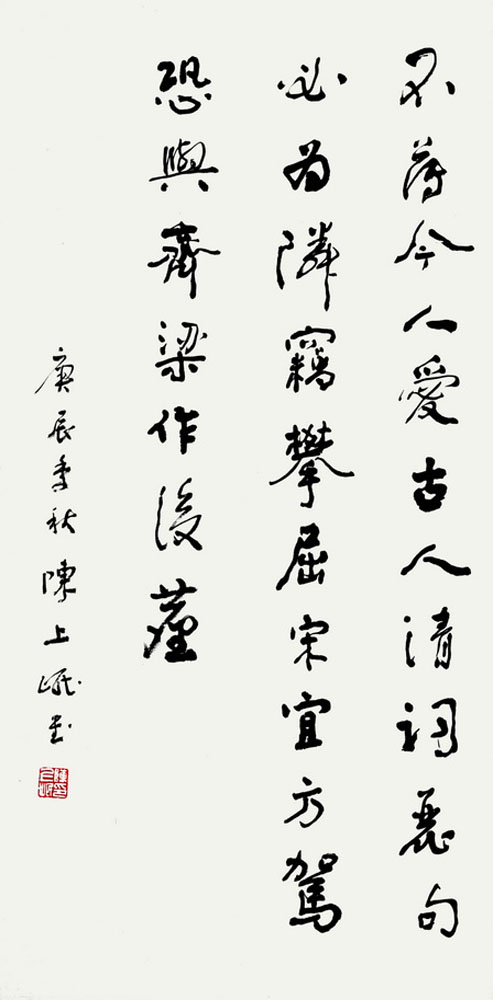 不薄今人愛古人清詞麗句
必為隣竊攀屈宋宜方駕
恐與齊梁作後塵
庚辰季秋陳上岷書